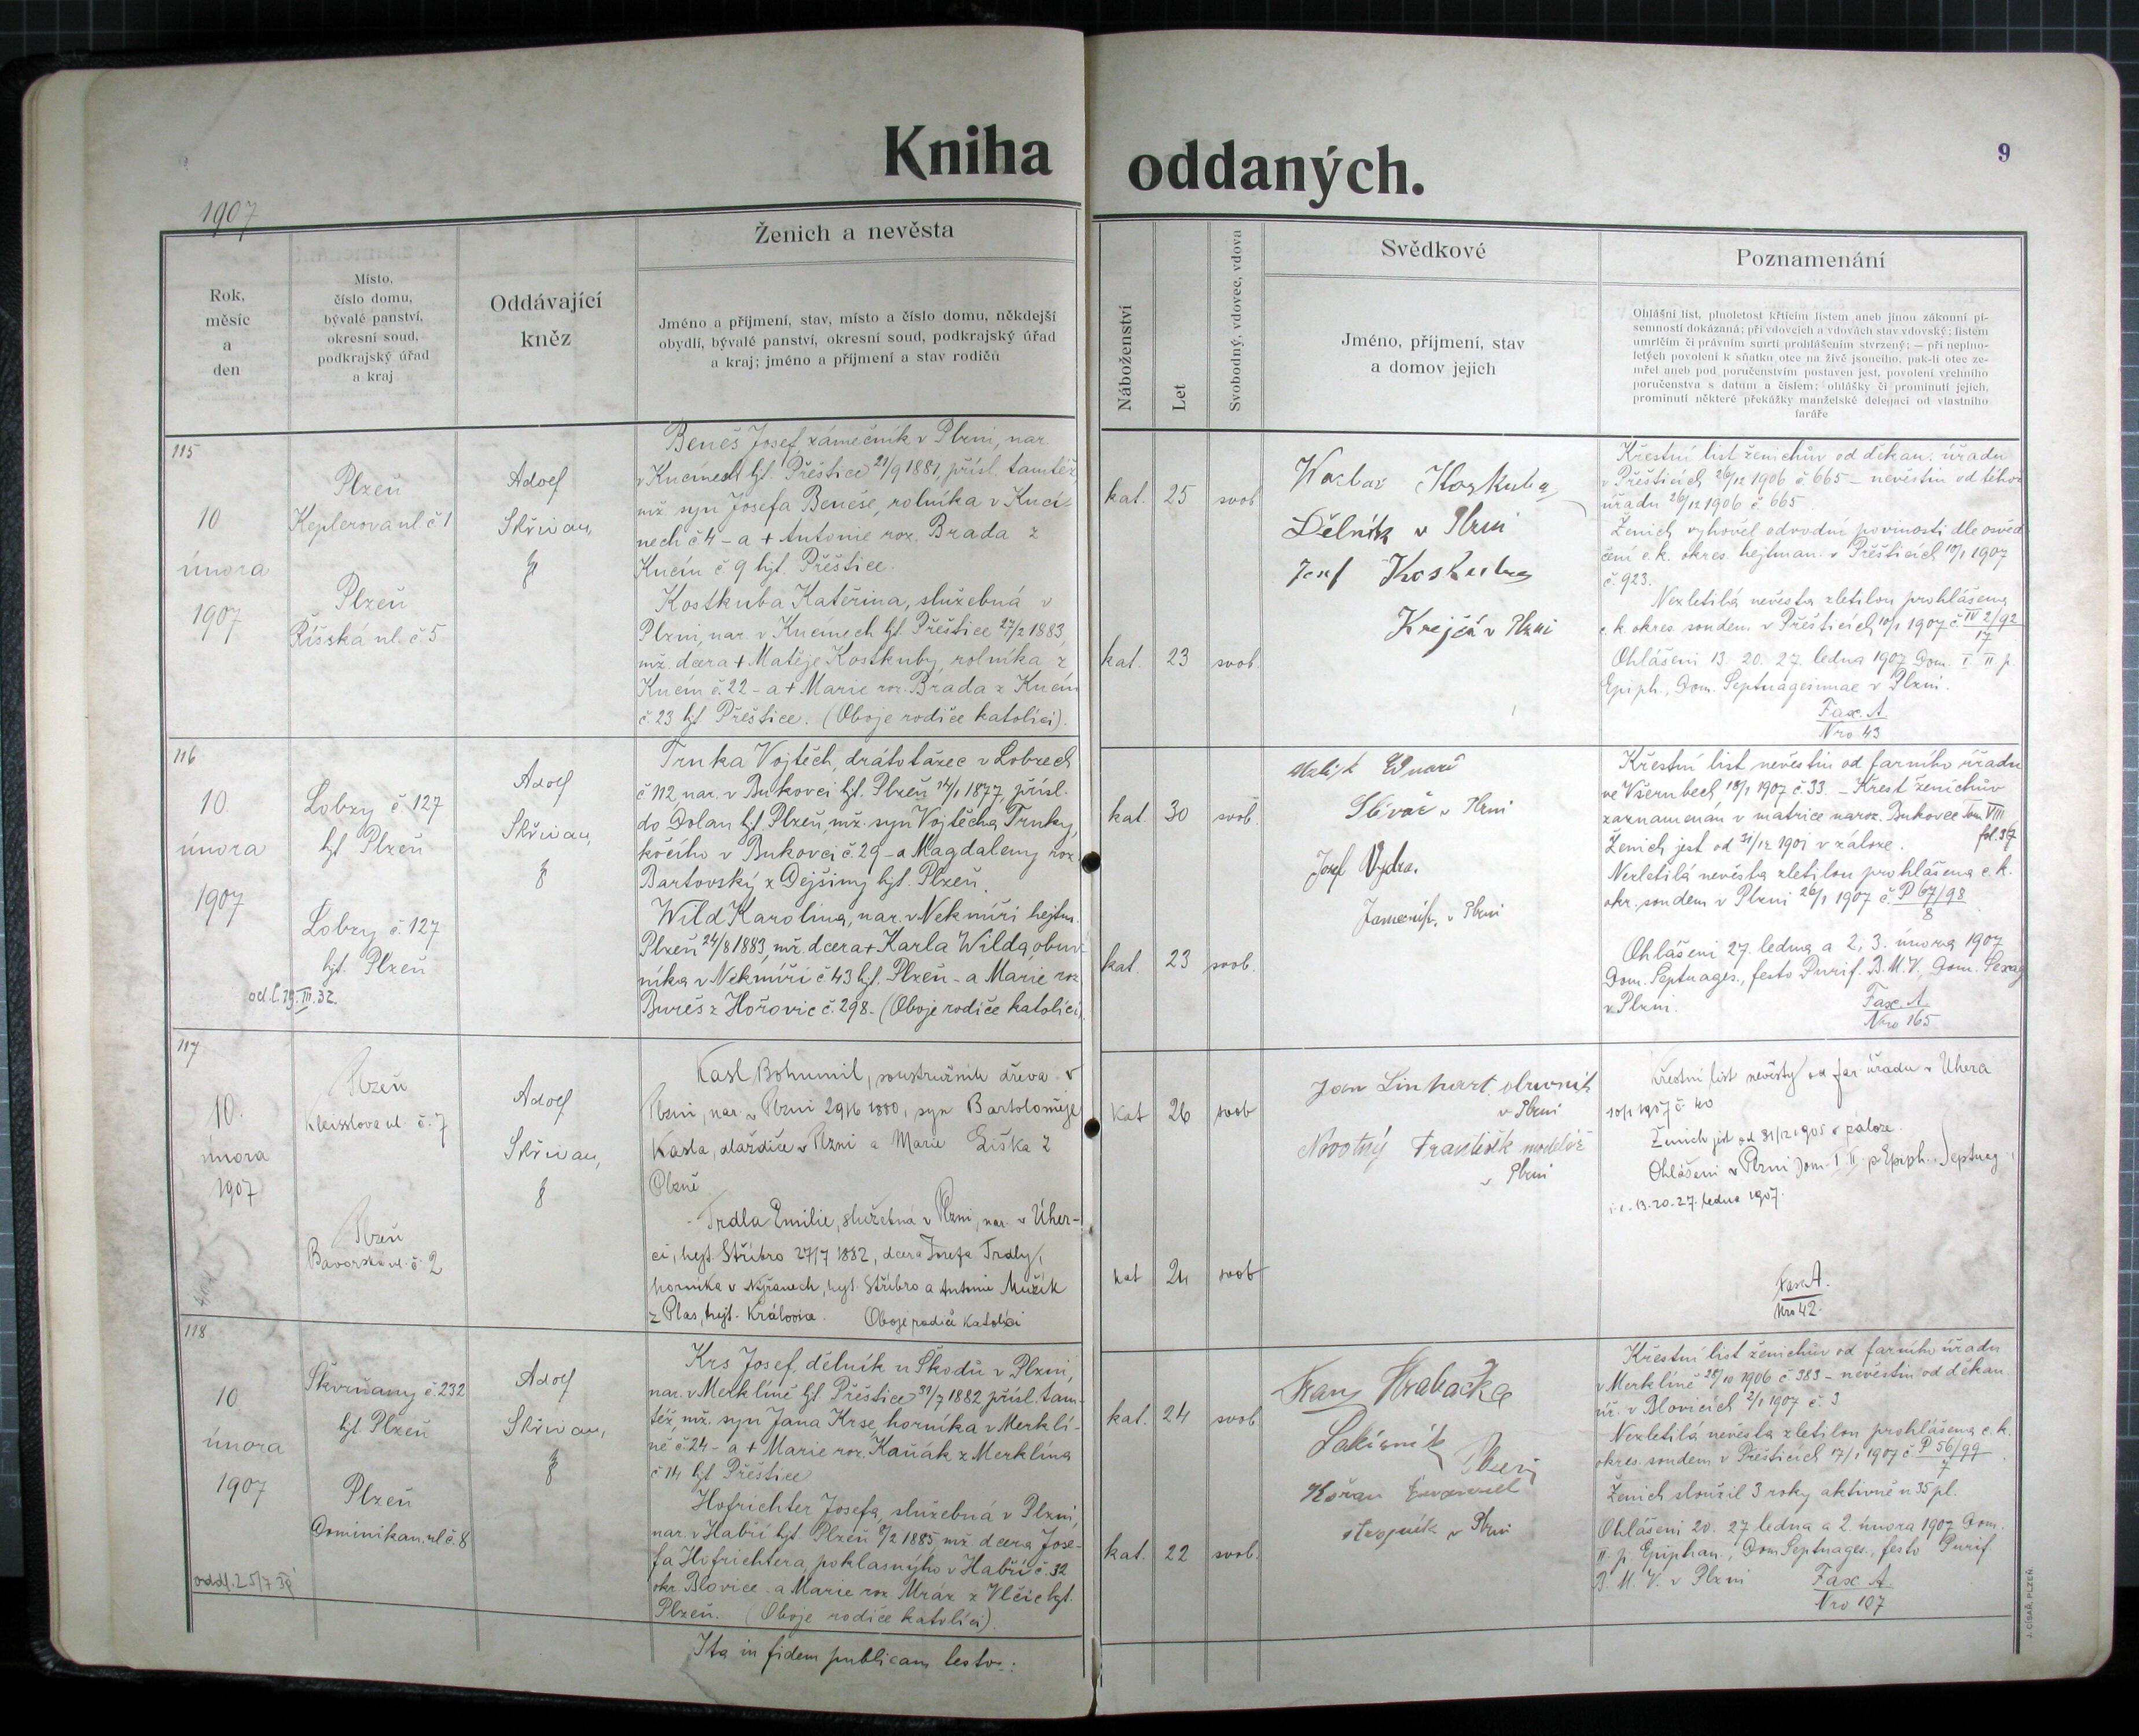 Kniha oddaných.
9
1907
Rok,
měsíc
a
den
Místo,
číslo domu,
bývalé panství,
okresní soud,
podkrajský úřad
a kraj
Oddávající
kněz
Ženich a nevěsta
Jméno a příjmení, stav, místo a číslo domu, někdejší
obydlí, bývalé panství, okresní soud, podkrajský úřad
a kraj; jméno a příjmení a stav rodičů
Náboženství
Let
Svobodný, vdovec, vdova
Svědkové
Jméno, příjmení, stav
a domov jejich
Poznamenání
Ohlášní list, plnoletost křticím listem aneb jinou zákonní pí-
semností dokázaná; při vdovcích a vdovách stav vdovský; listem
umrlčím či právním smrti prohlášením stvrzený; — při neplno-
letých povolení k sňatku otce na živě jsoucího, pak-li otec ze-
mřel aneb pod poručenstvím postaven jest, povolení vrchního
poručenstva s datum a číslem; ohlášky či prominutí jejich,
prominutí některé překážky manželské delegací od vlastního
faráře
115
10
února
1907
Plzeň
Keplerova ul. č 1
Plzeň
Říšská ul. č. 5
Adolf
Skřivan,
Beneš Josef, zámečník v Plzni, nar.
v Kucínech hjt. Přeštice 21/9 1881, přísl. tamtéž,
mž. syn Josefa Beneše, rolníka v Kucí-
nech č 4 - a + Antonie roz. Brada z
Kucín č. 9 hjt. Přeštice.
Kostkuba Kateřina, služebná v
Plzni, nar. v Kucínech hjt. Přeštice 27/2 1883,
mž. dcera + Matěje Kostkuby, rolníka z
Kucín č. 22 - a + Marie roz. Brada z Kucín
č. 23 hjt Přeštice. (Oboje rodiče katolíci).
kat. 25 svob
kat. 23 svob.
Koskuba
Dělník v Plzni
Josef Koskuba
Krejčí v Plzni
Křestní list ženichův od děkan. úřadu
v Přešticích 26/12 1906 č. 665 - nevěstin od téhož
úřadu 26/12 1906 č 665.
Ženich vyhověl odvodní povinosti dle osvěd
čení c. k. okres. hejtman. v Přešticích 10/1 1907
č. 923.
Nezletilá nevěsta zletilou prohlášena
c. k. okres. soudem v Přešticích 10/1 1907 č. IV 2/92
17
Ohlášeni 13. 20. 27. ledna 1907 Dom. I II p.
Epiph., Dom. Septuagesimae v Plzni.
Fasc. A
Nro 43
116
10.
února
1907
Lobzy č. 127
hjt Plzeň
Lobzy č. 127
hjt. Plzeň
Adolf
Skřivan,
Trnka Vojtěch, drátotažec v Lobzech
č 112 nar. v Bukovci hjt. Plzeň 24/1 1877, přísl.
do Dolan hjt. Plzeň, mž. syn Vojtěcha Trnky,
kočího v Bukovci č. 29 - a Magdaleny roz.
Bartovský z Dejšiny hjt. Plzeň.
Wild Karolina, nar. v Nekmíři hejtm.
Plzeň 24/8 1883, mž. dcera + Karla Wilda, obuv-
níka v Nekmíři č 43 hjt. Plzeň - a Marie roz
Bureš z Hořovic č. 298. (Oboje rodiče katolíci).
kat. 30 svob.
kat. 23 svob.
v Plzni
Josef Vydra.
v Plzni
Křestní list nevěstin od farního úřadu
ve Všerubech 18/1 1907 č. 33. - Křest ženichův
zaznamenán v matrice naroz. Bukovec Tom VIII
fol. 37
Ženich jest od 31/12 1901 v záloze.
Nezletilá nevěsta zletilou prohlášena c. k.
okr. soudem v Plzni 26/1 1907 č. P 67/98
8
Ohlášeni 27. ledna a 2, 3. února 1907
Dom. Septuages., festo Purif. B. M. V. Dom. Sexag
v Plzni.
Fasc. A.
Nro 165
117
10.
února
1907
Plzeň
Kleisslova ul. č. 7
Plzeň
Bavorská ul. č. 2
Adolf
Skřivan,
Kasl Bohumil, soustružník dřeva v
Plzni, nar. v Plzni 29/6 1880, syn Bartoloměje
Kasla, dlaždiče v Plzni a Marie Liška z
Plzně.
Trdla Emilie, služebná v Plzni, nar. v Úher-
ci, hejt. Stříbro 27/7 1882, dcera Josefa Trdly,
horníka v Nýřanech, hejt. Stříbro a Antonie Mužík
z Plas, hejt. Kralovice. Oboje rodiče katolíci
kat 26 svob
kat 24 svob
Jan Linhart, obuvník
v Plzni
Novotný František modelář
v Plzni
Křestní list nevěsty od far úřadu v Úherci
10/1 1907 č. 40
Ženich jest od 31/12 1905 v záloze.
Ohlášeni v Plzni Dom. I II p. Epiph. Septuag.
i. e. 13. 20. 27. ledna 1907.
Fasc A.
Nro 42.
118
10.
února
1907
Škvrňany č. 232
hjt. Plzeň
Plzeň
Dominikan. ul č. 8
Adolf
Skřivan,
Krs Josef, dělník u Škodů v Plzni,
nar. v Merklíně hjt. Přeštice 31/7 1882 přísl. tam-
též, mž. syn Jana Krse, horníka v Merklí-
ně č 24 - a + Marie roz. Kaňák z Merklína
č 14 hjt Přeštice
Hofrichter Josefa, služebná v Plzni,
nar. v Habří hjt. Plzeň 8/2 1885, mž. dcera Jose-
fa Hofrichtera, poklasného v Habří č. 32
okr. Blovice - a Marie roz. Mráz z Vlčic hjt.
Plzeň. (Oboje rodiče katolíci).
kat. 24 svob.
kat. 22 svob.
Franz Hrabačka
Plzni
Kořan Emanuel
strojník v Plzni
Křestní list ženichův od farního úřadu
v Merklíně 28/10 1906 č. 383 - nevěstin od děkan.
úř. v Blovicích 2/1 1907 č. 3
Nezletilá nevěsta zletilou prohlášena c. k.
okres. soudem v Přešticích 17/1 1907 č. P 56/99
7
Ženich sloužil 3 roky aktivně u 35 pl.
Ohlášeni 20. 27 ledna a 2. února 1907 Dom.
II. p. Epiphan., Dom. Septuages., festo Purif
B. M. V. v Plzni
Fasc. A.
Nro 107
Ita in fidem publicam testor:
J. CÍSAŘ, PLZEŇ.